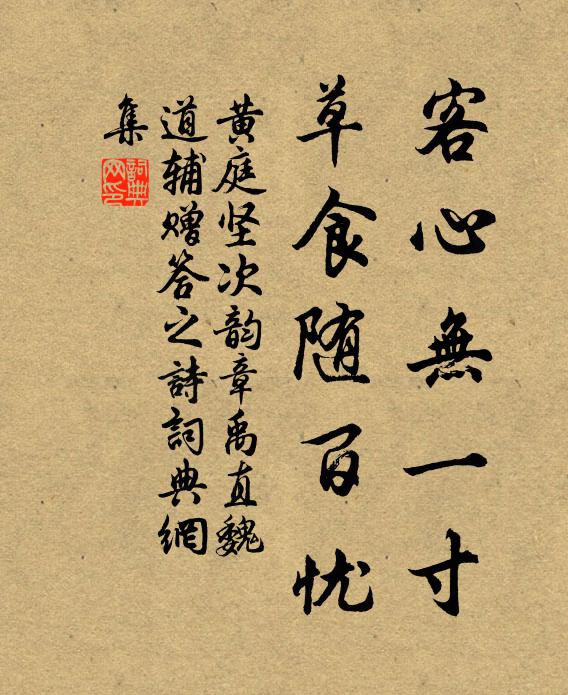 客心無一寸
草食随百忧
黄庭坚次韵章禹直魏
道辅赠答之詩詞典網
集
詞典
网印